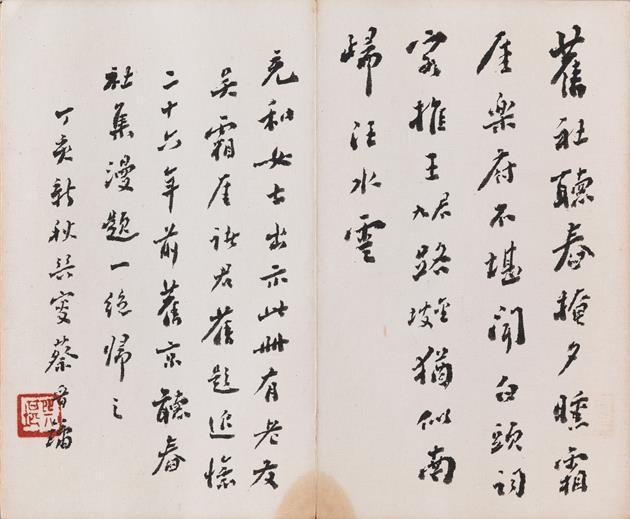 舊社聽春掩夕曛霜
厓樂府不堪聞白頭詞
客推王君九路金坡猶似南
歸汪水雲
充和女士出示此冊有老友
吳霜厓諸君舊題追憶
二十六年前舊京聽春
社集漫題一絕歸之
丁亥新秋吳叟蔡晉鏞